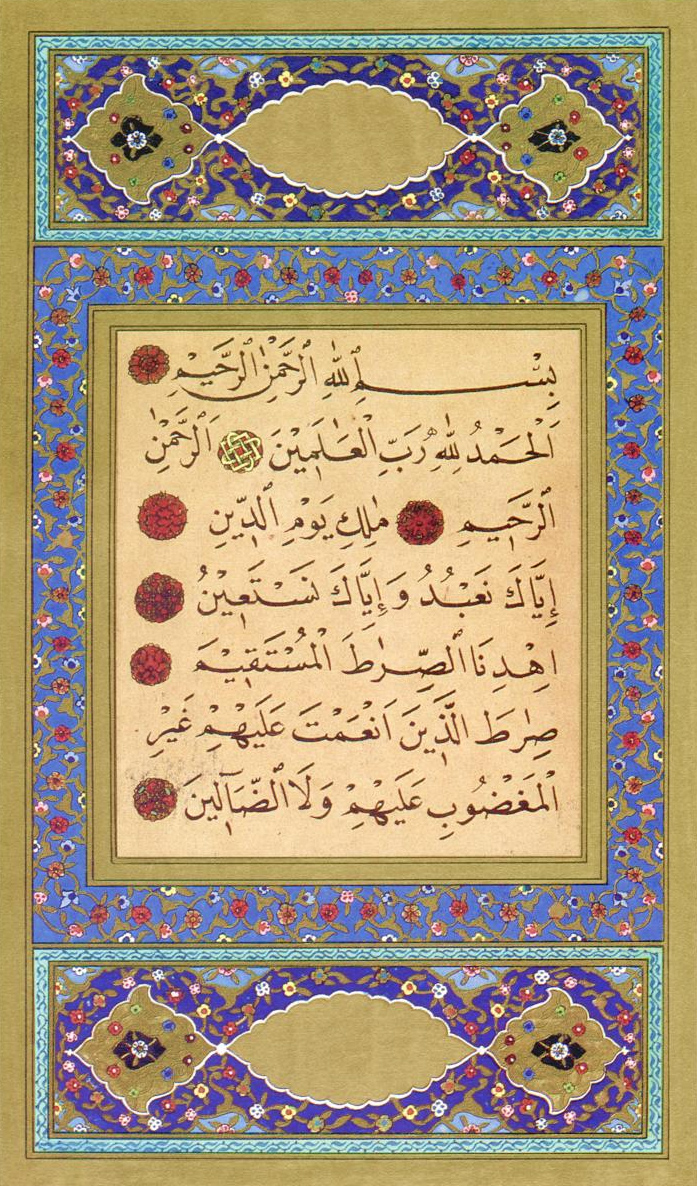 بِسْمِ اللّٰهِ الرَّحْمٰنِ الرَّحٖيمِ
اَلْحَمْدُ لِلّٰهِ رَبِّ الْعَالَمٖينَ اَلرَّحْمٰنِ
الرَّحٖيمِ مٰلِكِ يَوْمِ الدّٖينِ
اِيَّاكَ نَعْبُدُ وَاِيَّاكَ نَسْتَعٖينُ
اِهْدِنَا الصِّرٰاطَ الْمُسْتَقٖيمَ
صِرٰاطَ الَّذٖينَ اَنْعَمْتَ عَلَيْهِمْ غَيْرِ
الْمَغْضُوبِ عَلَيْهِمْ وَلَا الضَّٓالّٖينَ